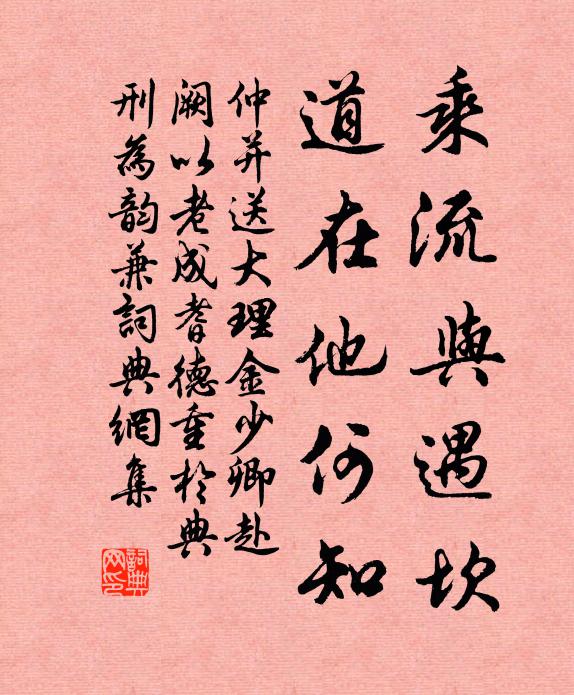 乘流與遇坎
道在他何知
仲并送大理金少卿赴
闕以老成耆德重於典
刑為韵兼詞典網集
詞典网印